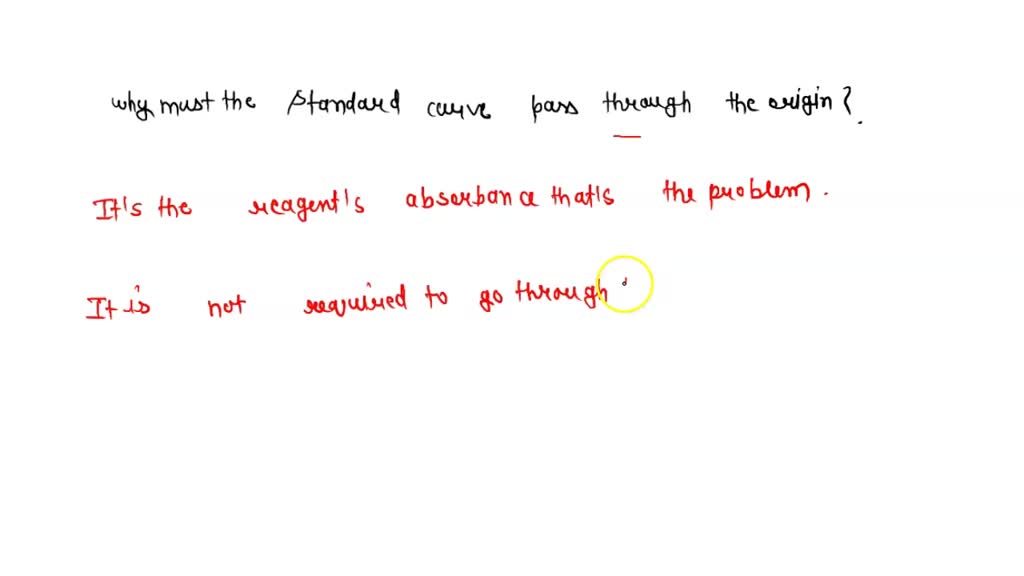 why must the standard curve pass through the origin?.
It's the reagent's absorbance that's the problem.
It is not required to go through